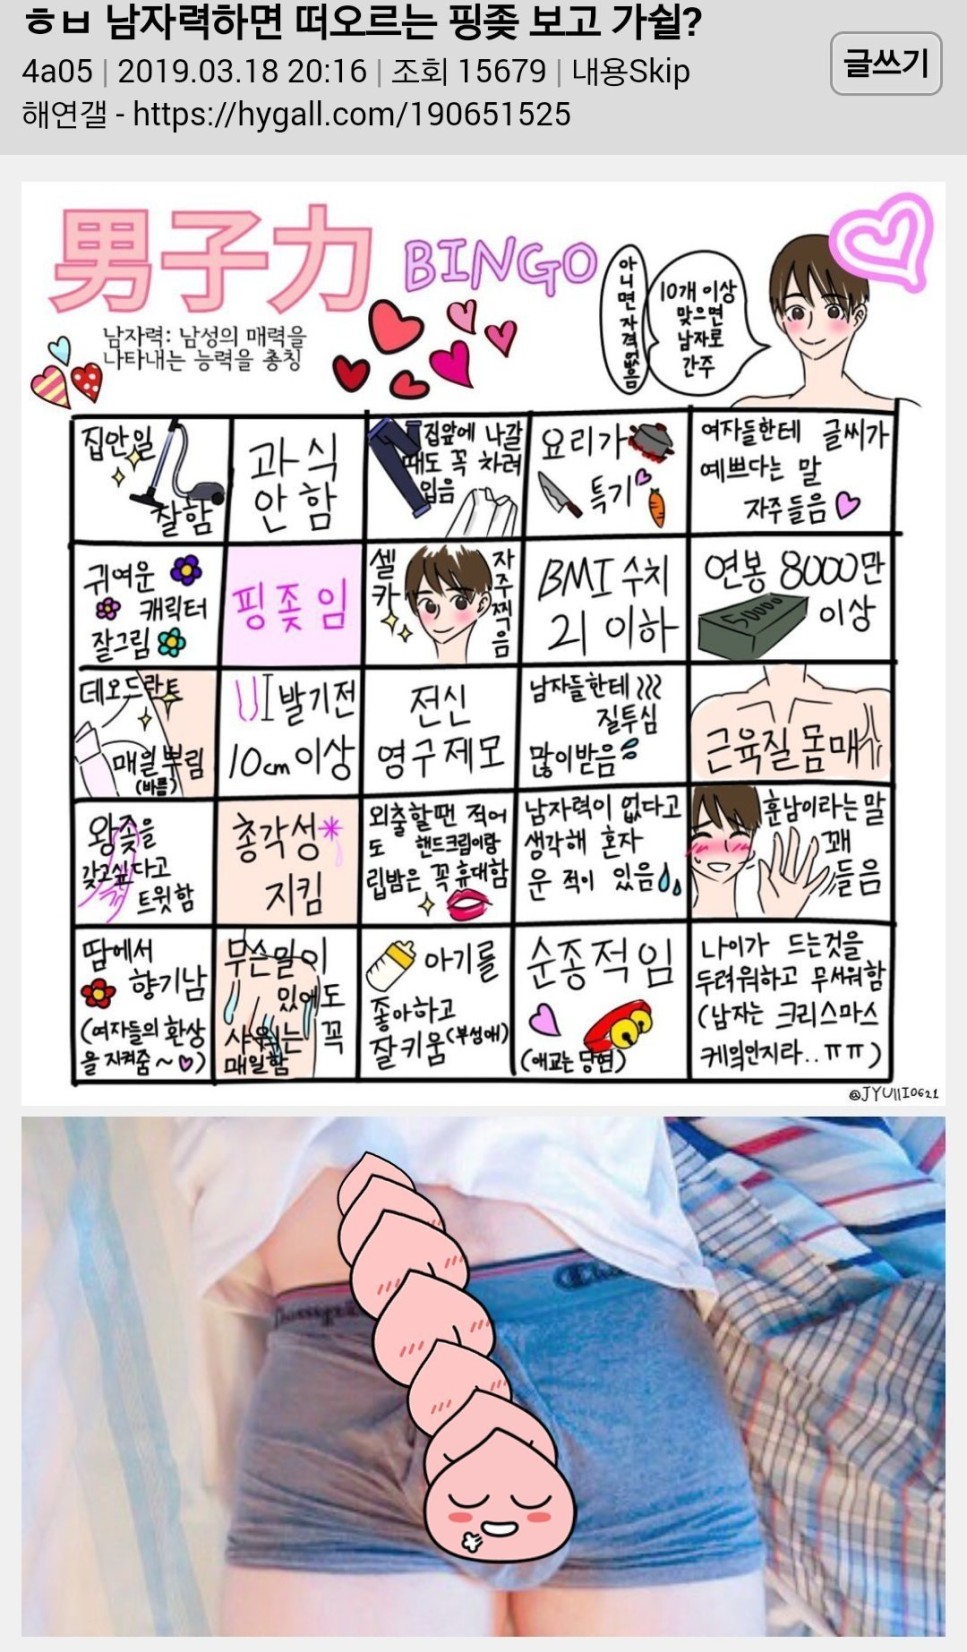 ㅎㅂ 남자력하면 떠오르는 핑좆 보고 가쉴?
4a05 | 2019.03.18 20:16 | 조회 15679 | 내용Skip
해연갤 - https://hygall.com/190651525
글쓰기
男子力 BINGO
남자력: 남성의 매력을
나타내는 능력을 총칭
10개 이상
맞으면
남자로
간주
아니면 자격없음
집안일
잘함
과식
안함
집앞에 나갈
때도 꼭 차려
입음
요리가
특기
여자들한테 글씨가
예쁘다는 말
자주 들음
귀여운
캐릭터
잘그림
핑좆임
셀카
자주찍음
BMI 수치
21 이하
연봉 8000만
이상
50000
데오드란트
매일뿌림
(바름)
발기전
10cm 이상
전신
영구제모
남자들한테
질투심
많이받음
근육질 몸매
왕좆을
갖고싶다고
트윗함
총각성
지킴
외출할땐 적어
도 핸드크림이랑
립밤은 꼭 휴대함
남자력이 없다고
생각해 혼자
운 적이 있음
훈남이라는 말
꽤
들음
땀에서
향기남
(여자들의 환상
을 지켜줌~)
무슨일이
있어도
샤워는 꼭
매일함
아기를
좋아하고
잘키움(부성애)
순종적임
(애교는 당연)
나이가 드는것을
두려워하고 무서워함
(남자는 크리스마스
케잌인지라..ㅠㅠ)
@JYUIII0621